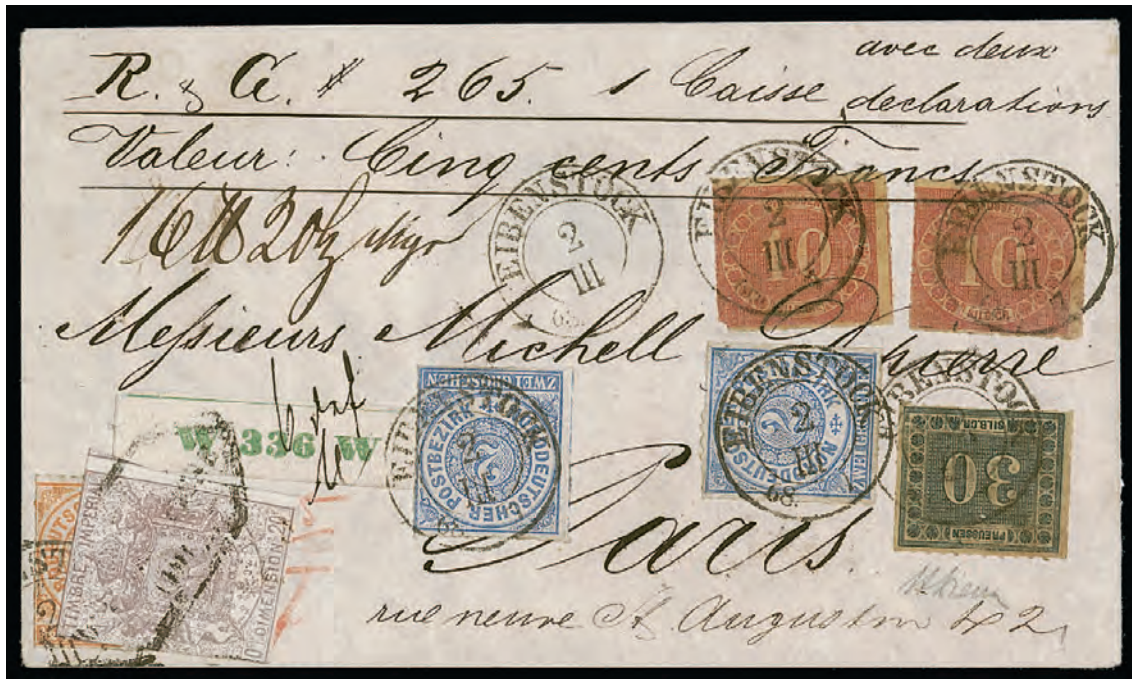 avec deux
R. & C. # 265. 1 Caisse declarations
Valeur: Cinq cents Francs
EIBENSTOCK
2
III
68.
EIBENSTOCK
2
III
10
EIBENSTOCK
2
III
10
16 20
Messieurs Michell
W 336 W
NORDDEUTSCHER POSTBEZIRK
ZWEI GROSCHEN
EIBENSTOCK
2
III
68.
NORDDEUTSCHER POSTBEZIRK
EIBENSTOCK
2
III
68.
EIBENSTOCK
30
SILB.GR.
PREUSSEN
TIMBRE IMPERIAL
DIMENSION 20
Paris.
rue neuve St. Augustin 42